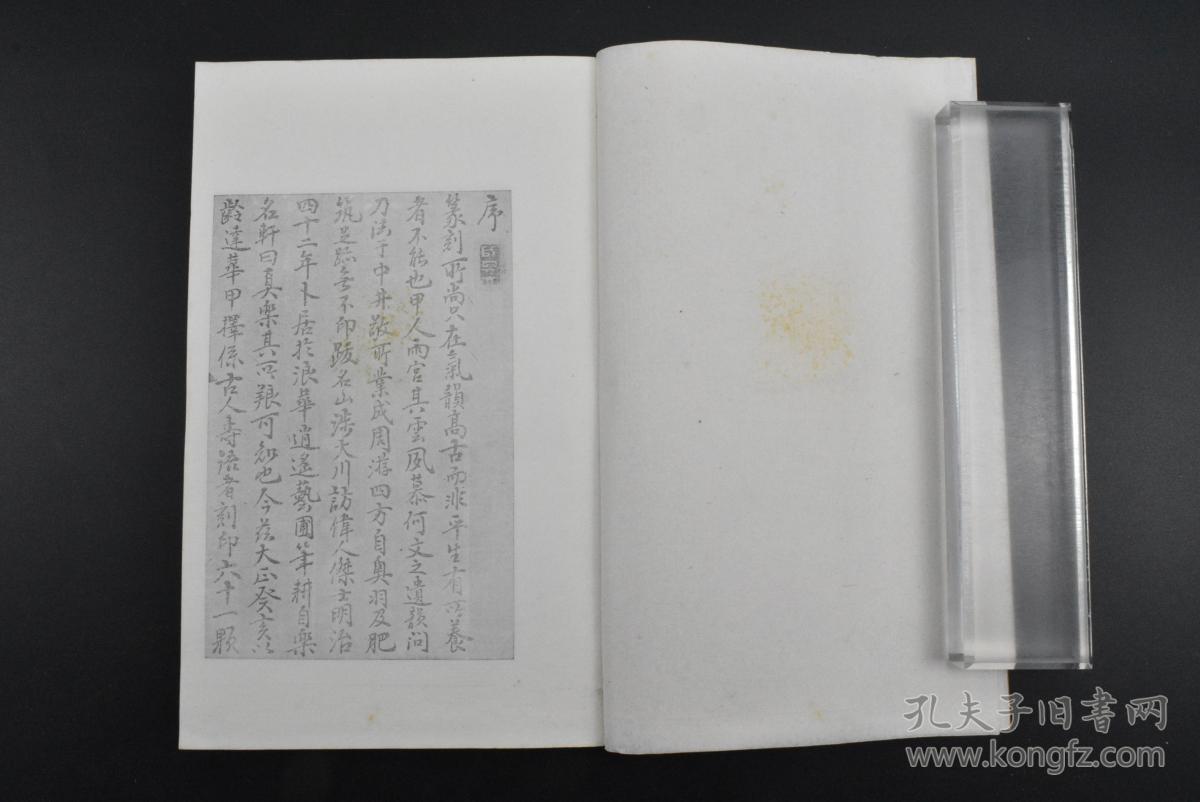 序
篆刻所尚只在氣韻高古而非平生有所養
者不能也甲人雨宮其雲夙慕何文之遺韻問
刀法于中井敬所業成周游四方自奧羽及肥
筑足跡無不印跋名山涉大川訪偉人傑士明治
四十二年卜居於浪華逍遙藝圃筆耕自樂
名軒曰真樂其所養可知也今茲大正癸亥以
齡達華甲擇係古人壽語者刻印六十一顆
孔夫子旧書网
www.kongfz.com